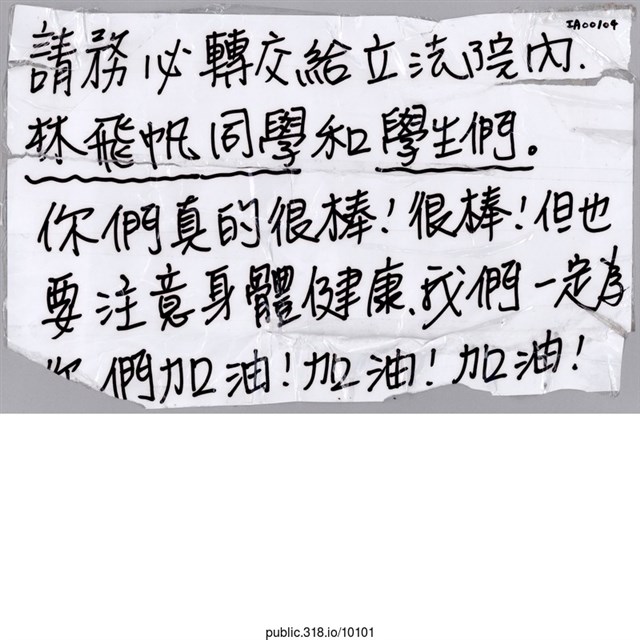 IA00104
請務必轉交給立法院內.
林飛帆同學和學生們。
你們真的很棒!很棒!但也
要注意身體健康、我們一定為
你們加油!加油!加油!
public.318.io/10101